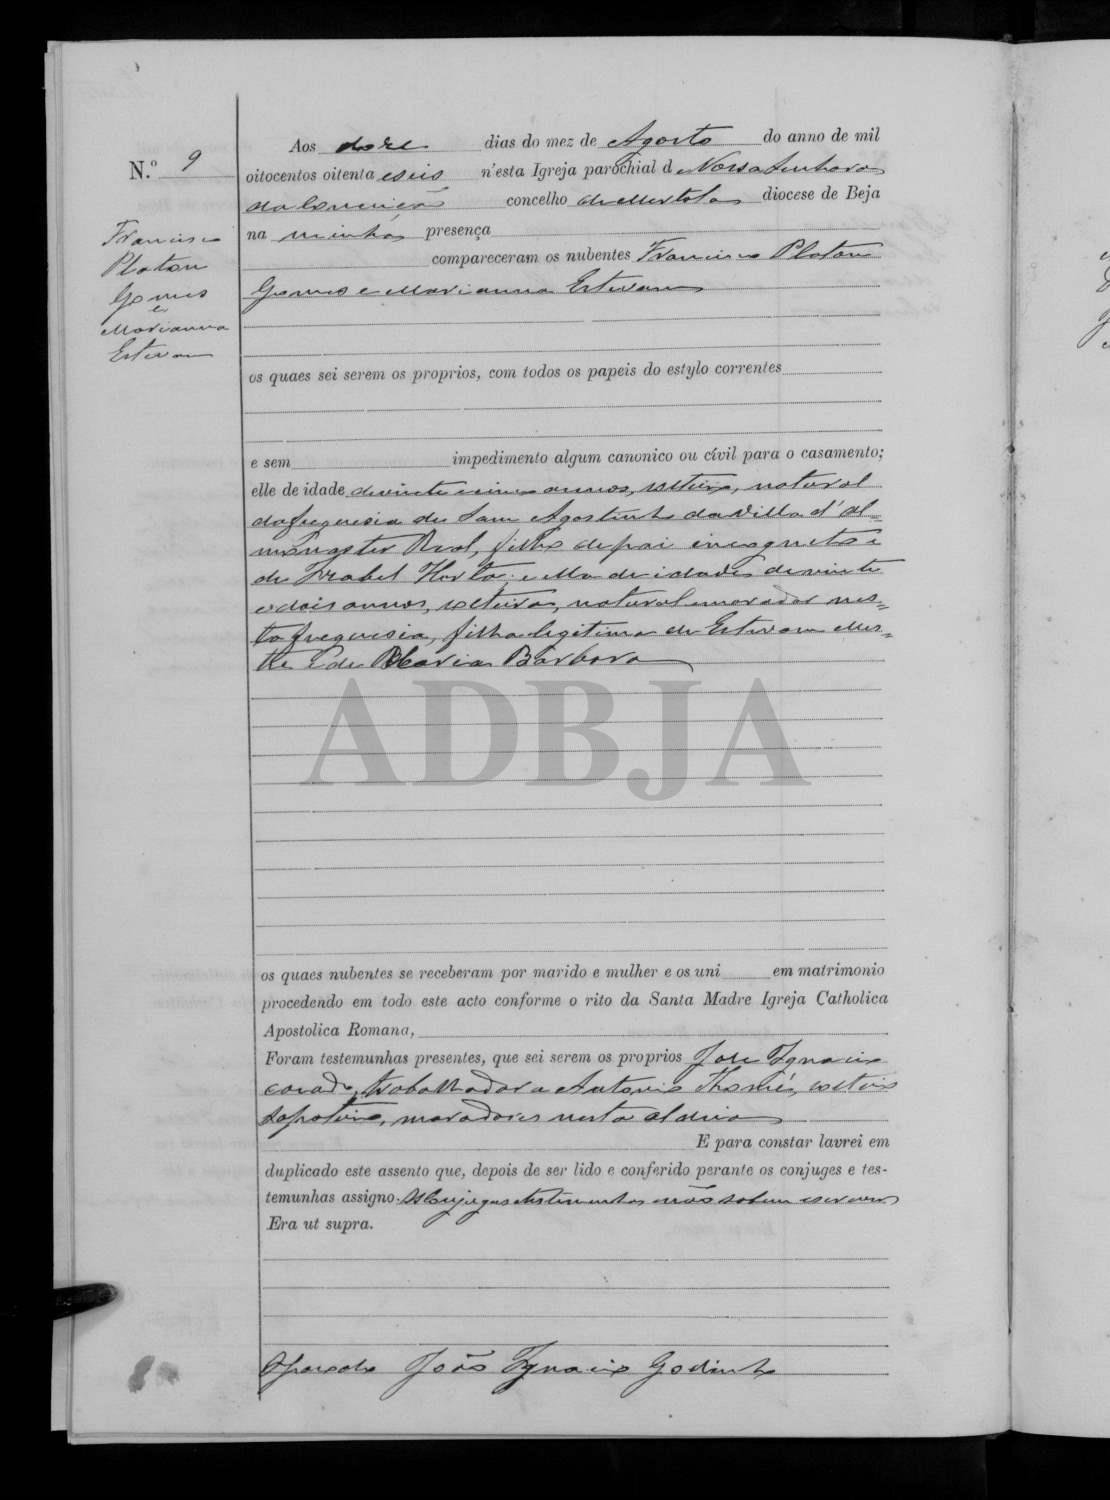 N.º 9
Francisco
Platon
Gomes
e
Marianna
Estevam
Aos doze dias do mez de Agosto do anno de mil
oitocentos oitenta e seis n'esta Igreja parochial de Nossa Senhora
da Conceição concelho de Mertola diocese de Beja
na minha presença
compareceram os nubentes Francisco Platon
Gomes e Marianna Estevam
os quaes sei serem os proprios, com todos os papeis do estylo correntes
e sem impedimento algum canonico ou civil para o casamento;
elle de idade de vinte e cinco annos, solteiro, natural
da freguesia de Sam Agostinho da villa d'Al=
modovar Real, filho de pai incognito e
de Izabel Horta; e ella de idade de vinte
e dois annos, solteira, natural e morador nes=
ta freguesia, filha legitima de Estevam Mes=
tre e de Maria Barbara
ADBJA
os quaes nubentes se receberam por marido e mulher e os uni em matrimonio
procedendo em todo este acto conforme o rito da Santa Madre Igreja Catholica
Apostolica Romana,
Foram testemunhas presentes, que sei serem os proprios José Ignacio
casado, trabalhador e Antonio Thomé, solteiro
sapateiro, moradores nesta aldeia
E para constar lavrei em
duplicado este assento que, depois de ser lido e conferido perante os conjuges e tes-
temunhas assigno. Os conjuges e testemunhas não sabem escrever
Era ut supra.
O parocho João Ignacio Godinho